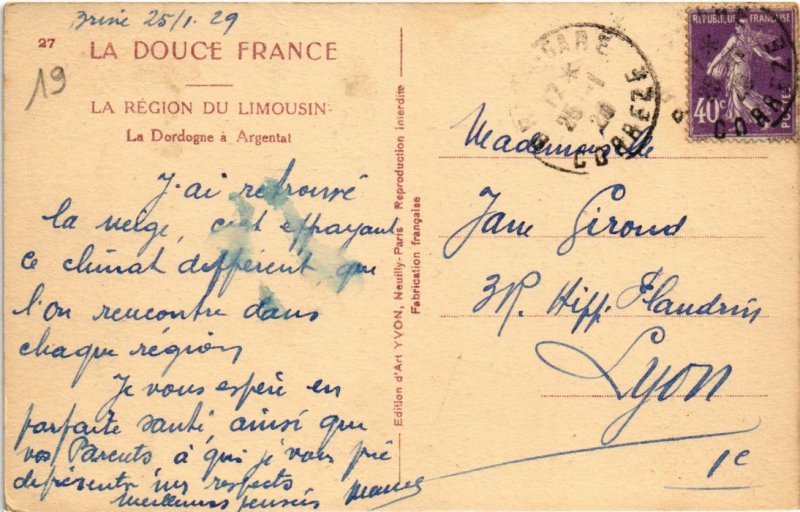 Brive 25/1.29
27 LA DOUCE FRANCE
19
LA RÉGION DU LIMOUSIN
La Dordogne à Argentat
J'ai retrouvé
la neige, c'est effrayant
ce climat différent que
l'on rencontre dans
chaque région
Je vous espère en
parfaite santé ainsi que
vos Parents à qui je vous prie
de présenter mes respects
meilleures pensées
Edition d'Art YVON, Neuilly-Paris Reproduction interdite
Fabrication française
GARE
17 *
25 -1
29
CORREZE
REPUBLIQUE FRANÇAISE
40c
POSTES
CORREZE
Mademoiselle
Jane Giroud
3 R. Hipp. Flandrin
Lyon
1e